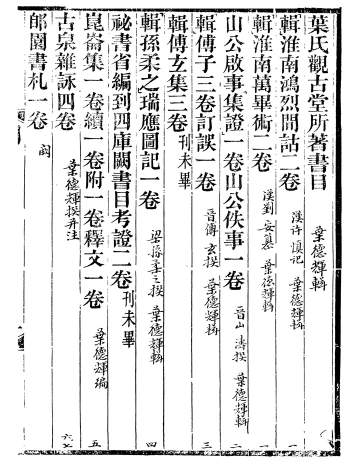 葉氏觀古堂所著書目 葉德輝輯
輯淮南鴻烈閒詁二卷 漢許慎記 葉德輝輯 一
輯淮南萬畢術二卷 漢劉安纂 葉德輝輯 一
山公啟事集證一卷山公佚事一卷 晉山濤撰 葉德輝輯 二
輯傅子三卷訂誤一卷 晉傅玄撰 葉德輝輯 三
輯傅玄集三卷 刊未畢
輯孫柔之瑞應圖記一卷 梁孫柔之撰 葉德輝輯 四
祕書省編到四庫闕書目考證二卷 刊未畢
崑崙集一卷續一卷附一卷釋文一卷 葉德輝編 五
古泉雜詠四卷 葉德輝撰并注 六七
郋園書札一卷 闕